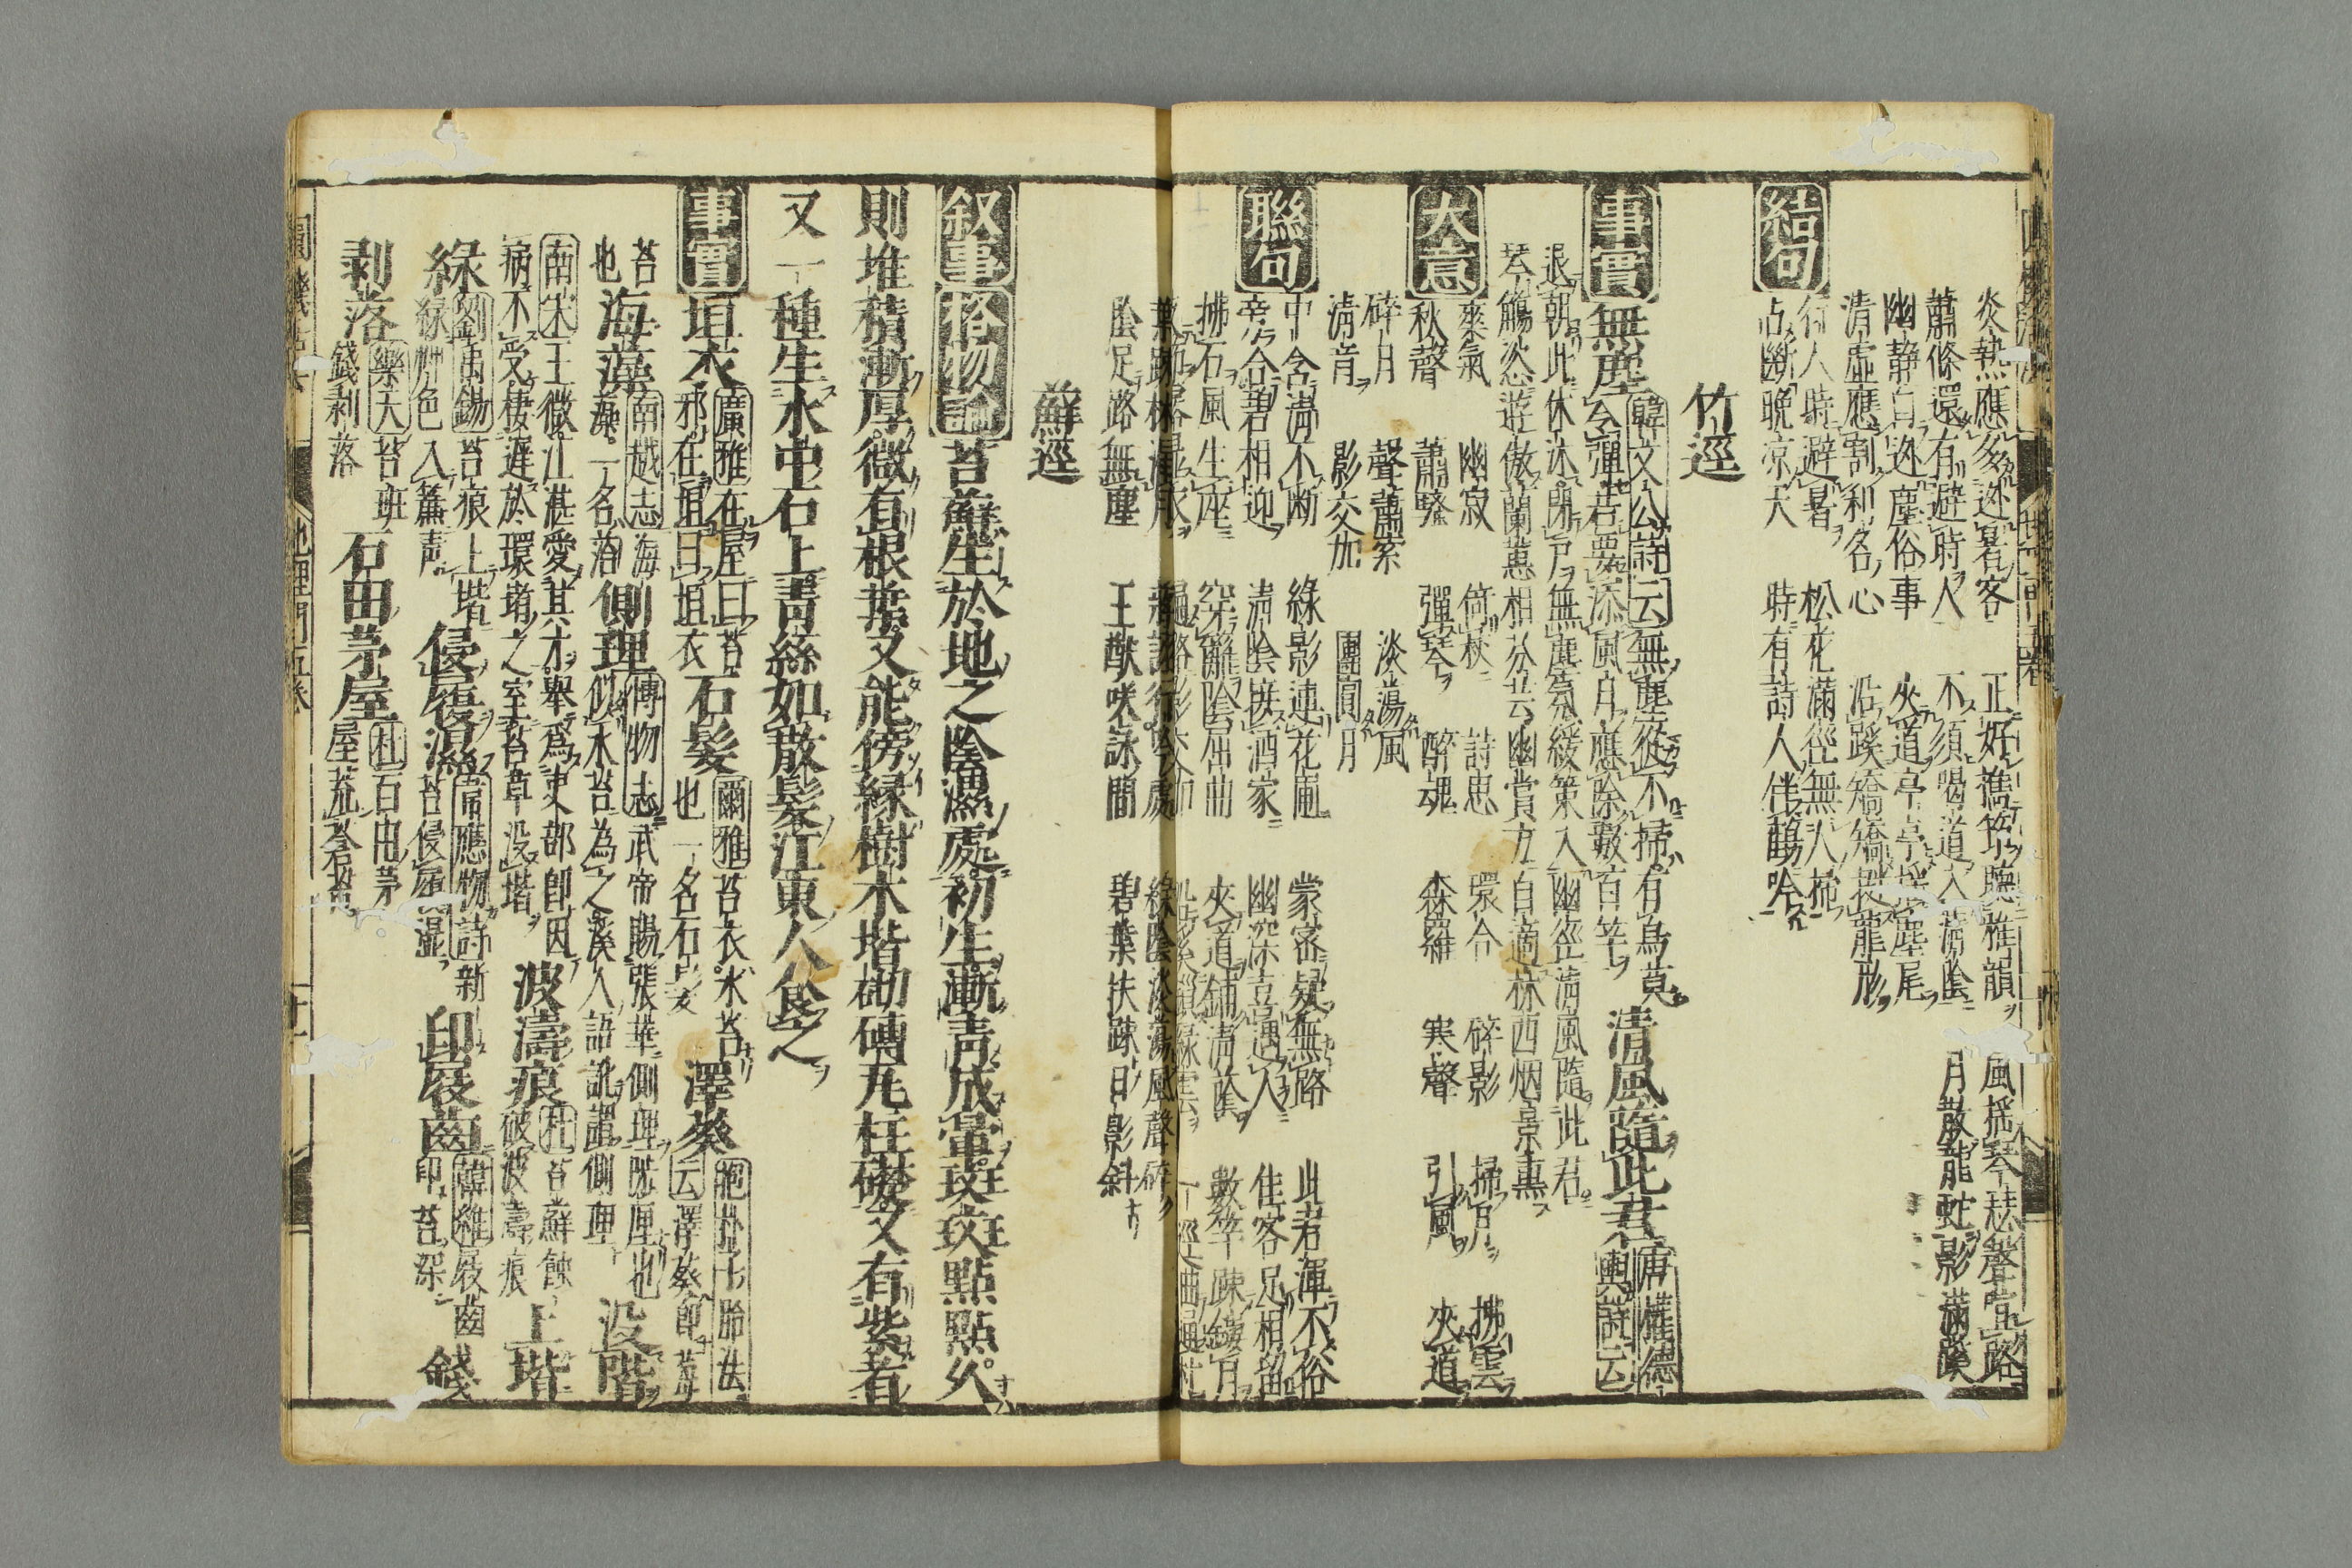 炎熱應多逊暑客　正好攜筇聽雅韻　風揺琴瑟聲當路
蕭條還有避時人　不須喝道入清陰　月散龍蛇影滿蹊
幽静自逊塵俗事　夾道亭亭揺塵尾
清虛應割利名心　沿蹊矯矯長龍形
行人時避暑　松花滿徑無人掃
結句
占断晩凉天　時有詩人伴鶴吟
竹逕
事實
無塵　韓文公詩云無塵從不掃有鳥莫
令彈若要添風月應除數百竿
清風隨此君　唐權德輿詩云
退朝此休沐閉戸無塵氛緩策入幽徑清風隨此君
琴觴恣遊傲蘭蕙相芬芸幽賞方自適林西烟景熏
大意
爽氣　幽寂　倚杖　詩思　環合　碎影　掃月　拂雲
秋聲　蕭騷　彈琴　醉魂　森羅　寒聲　引風　夾道
碎月　聲蕭索　淡蕩風
清音　影交加　團圓月
聯句
中含清不断　綠影連花圃　蒙密疑無路　此君渾不俗
旁合碧相迎　清陰接酒家　幽深喜遇人　佳客足相留
拂石風生座　穿籬陰屈曲　夾道鋪清蔭　數竿疎鏤月
葉疎林漏月　蔣詡行吟處　綠陰淡蕩風聲碎
陰足路無塵　王猷咲詠間　碧葉扶疎日影斜
蘚逕
叙事
格物論
苔蘚生於地之陰濕處初生漸青成暈斑斑點點久
則堆積漸厚微有根葉又能傍緑樹木堦砌磚瓦柱礎又有紫者
又一種生水中石上青絲如散髪江東人食之
事實
垣衣　廣雅在屋曰苔
邪在垣曰垣衣
石髪　爾雅苔衣水苔
也一名石髪
澤葵　抱朴子胎法
云澤葵即莓
苔
也
海藻　南越志海
藻一名落
側理　博物志武帝賜張華側理陟厘也
似水苔為之溪人語訛謂側理
没階
南宋王微江湛愛其才舉爲吏部郎因
病不受棲遲於環堵之室苔草没堦
波濤痕　杜苔蘚蝕
破波濤痕
上堦
綠　劉禹錫苔痕上堦
綠艸色入簾青
侵履濕　韋應物詩新
苔侵履濕
印屐齒　韓維屐齒
印苔深
錢
剥落　樂天苔班
錢剥落
石由茅屋　杜百由茅
屋荒蒼苔
地理門五卷